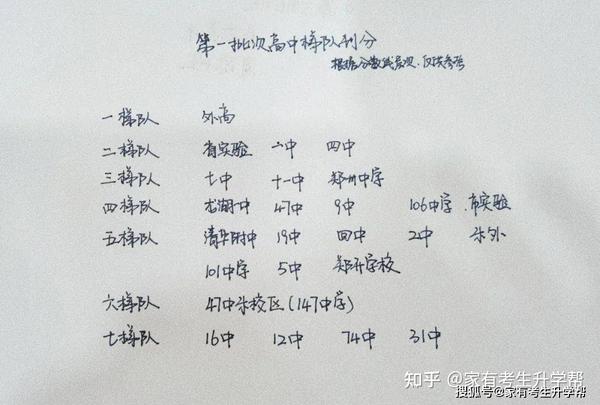 第一批次高中梯队划分
根据分数线层次，仅供参考
一梯队 外高
二梯队 省实验 一中 四中
三梯队 七中 十一中 郑州中学
四梯队 龙湖一中 47中 9中 106中学 市实验
五梯队 清华附中 19中 回中 2中 东外
101中学 5中 郑开学校
六梯队 47中东校区(147中学)
七梯队 16中 12中 74中 31中
知乎 @家有考生升学帮
搜狐号@家有考生升学帮